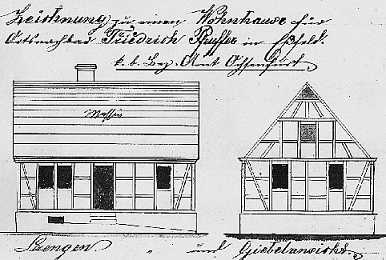 Zeichnung zu einem Wohnhause für
Ortsnachbar Friedrich in
k. b. Bez. Amt Ochsenfurt.
Massiv
Laengen " und Giebelansicht.